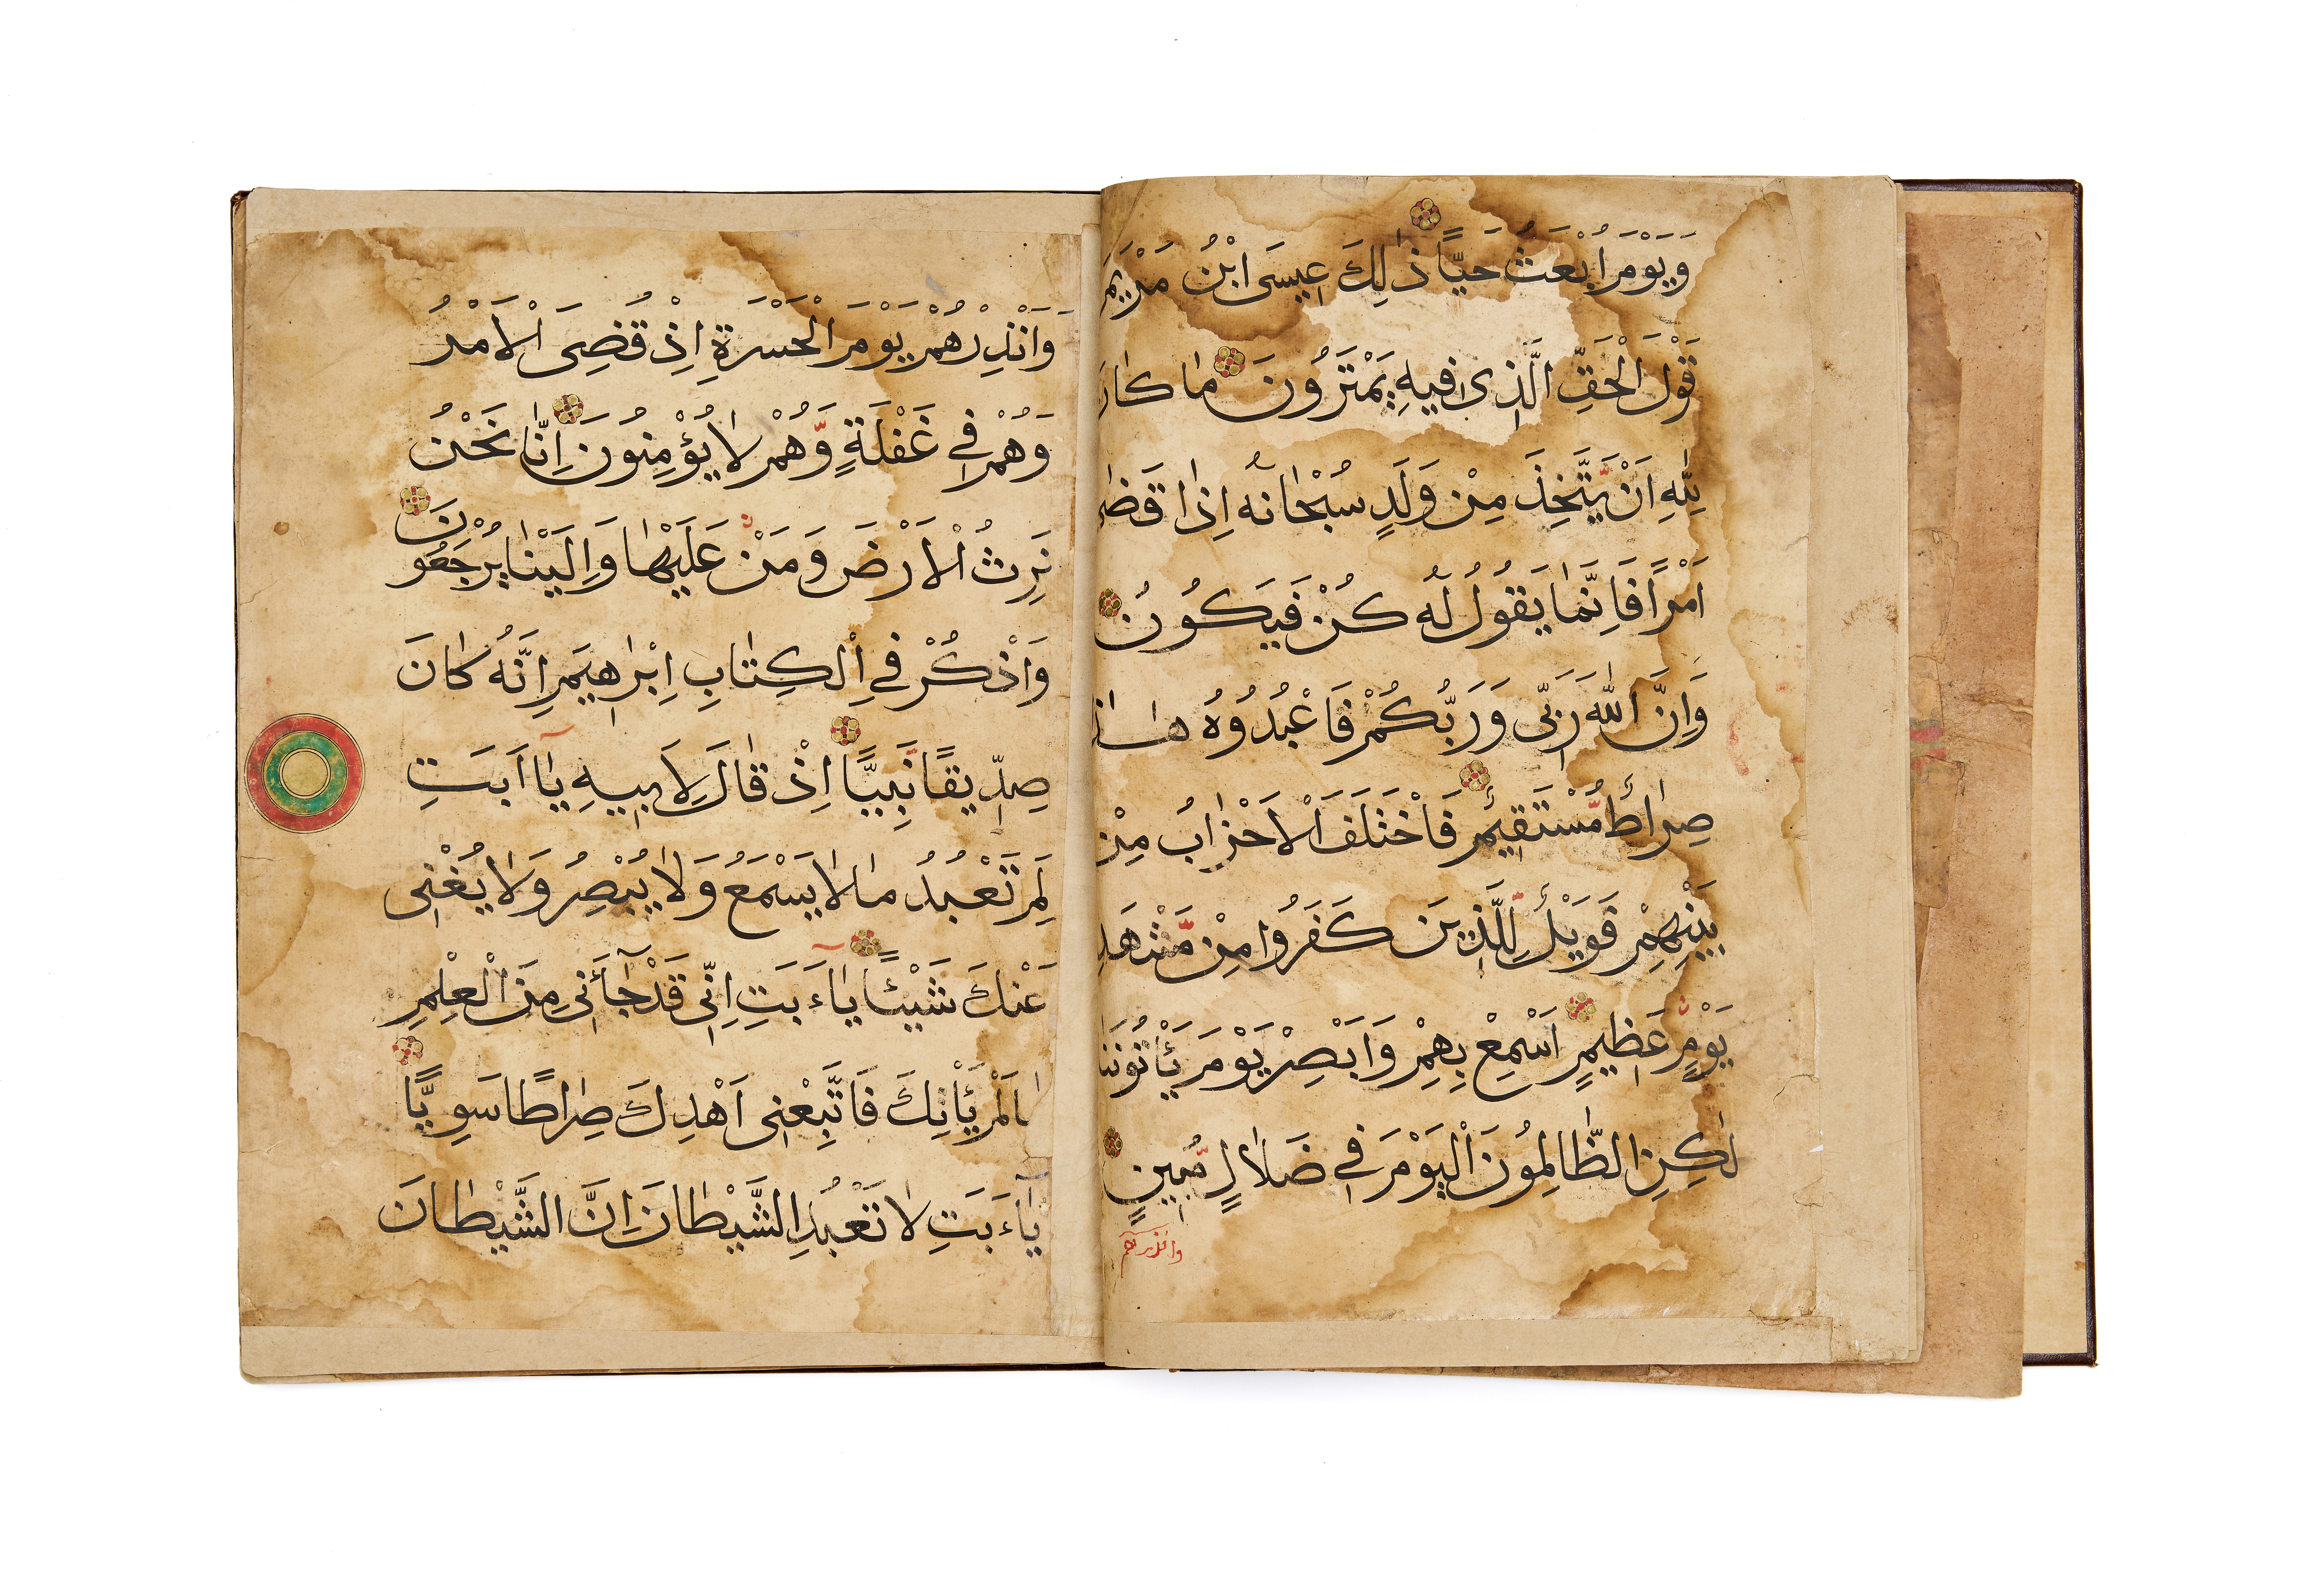 وَيَوْمَ اُبْعَثُ حَيًّا ذٰلِكَ عِيسَى ابْنُ مَرْيَمَ
قَوْلَ الْحَقِّ الَّذِى فِيهِ يَمْتَرُونَ مٰا كٰانَ
لِلّٰهِ اَنْ يَّتَّخِذَ مِنْ وَلَدٍ سُبْحٰانَهُ اِذٰا قَضٰى
اَمْرًا فَاِنَّمٰا يَقُولُ لَهُ كُنْ فَيَكُونُ
وَاِنَّ اللّٰهَ رَبِّى وَرَبُّكُمْ فَاعْبُدُوهُ هٰذٰا
صِرٰاطٌ مُّسْتَقِيمٌ فَاخْتَلَفَ الْاَحْزٰابُ مِنْ
بَيْنِهِمْ فَوَيْلٌ لِّلَّذِينَ كَفَرُوا مِنْ مَّشْهَدِ
يَوْمٍ عَظِيمٍ اَسْمِعْ بِهِمْ وَاَبْصِرْ يَوْمَ يَأْتُونَنٰا
لٰكِنِ الظّٰالِمُونَ الْيَوْمَ فِى ضَلٰالٍ مُّبِينٍ
وانذرهم
وَاَنْذِرْهُمْ يَوْمَ الْحَسْرَةِ اِذْ قُضِىَ الْاَمْرُ
وَهُمْ فِى غَفْلَةٍ وَّهُمْ لٰا يُؤْمِنُونَ اِنّٰا نَحْنُ
نَرِثُ الْاَرْضَ وَمَنْ عَلَيْهٰا وَاِلَيْنٰا يُرْجَعُونَ
وَاذْكُرْ فِى الْكِتٰابِ اِبْرٰاهِيمَ اِنَّهُ كٰانَ
صِدِّيقًا نَّبِيًّا اِذْ قٰالَ لِاَبِيهِ يٰا اَبَتِ
لِمَ تَعْبُدُ مٰا لٰا يَسْمَعُ وَلٰا يُبْصِرُ وَلٰا يُغْنِى
عَنْكَ شَيْئًا يٰاءَبَتِ اِنِّى قَدْ جٰٓاءَنِى مِنَ الْعِلْمِ
مٰا لَمْ يَأْتِكَ فَاتَّبِعْنِى اَهْدِكَ صِرٰاطًا سَوِيًّا
يٰاءَبَتِ لٰا تَعْبُدِ الشَّيْطٰانَ اِنَّ الشَّيْطٰانَ